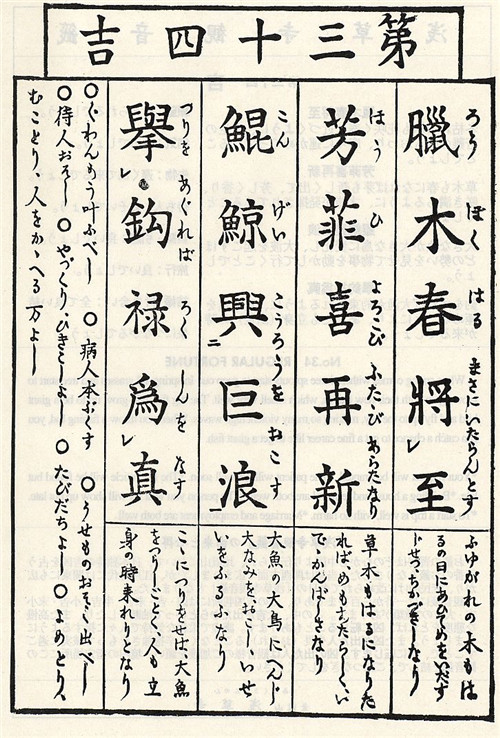 第三十四吉
らうぼくはるまさにいたらんとす
臘木春將レ至
ふゆがれの木もは
るの日にあひてめをいだす
じせつちかづきしなり
はうひよろこびふたゝびあらたなり
芳菲喜再新
草木もはるになりた
れば、めもあたらしくい
でゝかんばしきなり
こんげいこうろうをおこす
鯤鯨興ニ巨浪一
大魚の大鳥にへんじ
大なみをおこしいせ
いをふるふなり
つりをあぐればろくしんをなす
擧レ鈎禄爲レ真
こゝにつりをせば、大魚
をつらんごとく人も立
身の時来れしとなり
〇ぐわんもう叶ふべし 〇病人本ぶくす 〇うせものおそく出べし
〇待人おそし 〇やづくり、ひきこしよし 〇たびだちよし 〇よめとり、
むことり、人をかゝへる万よし